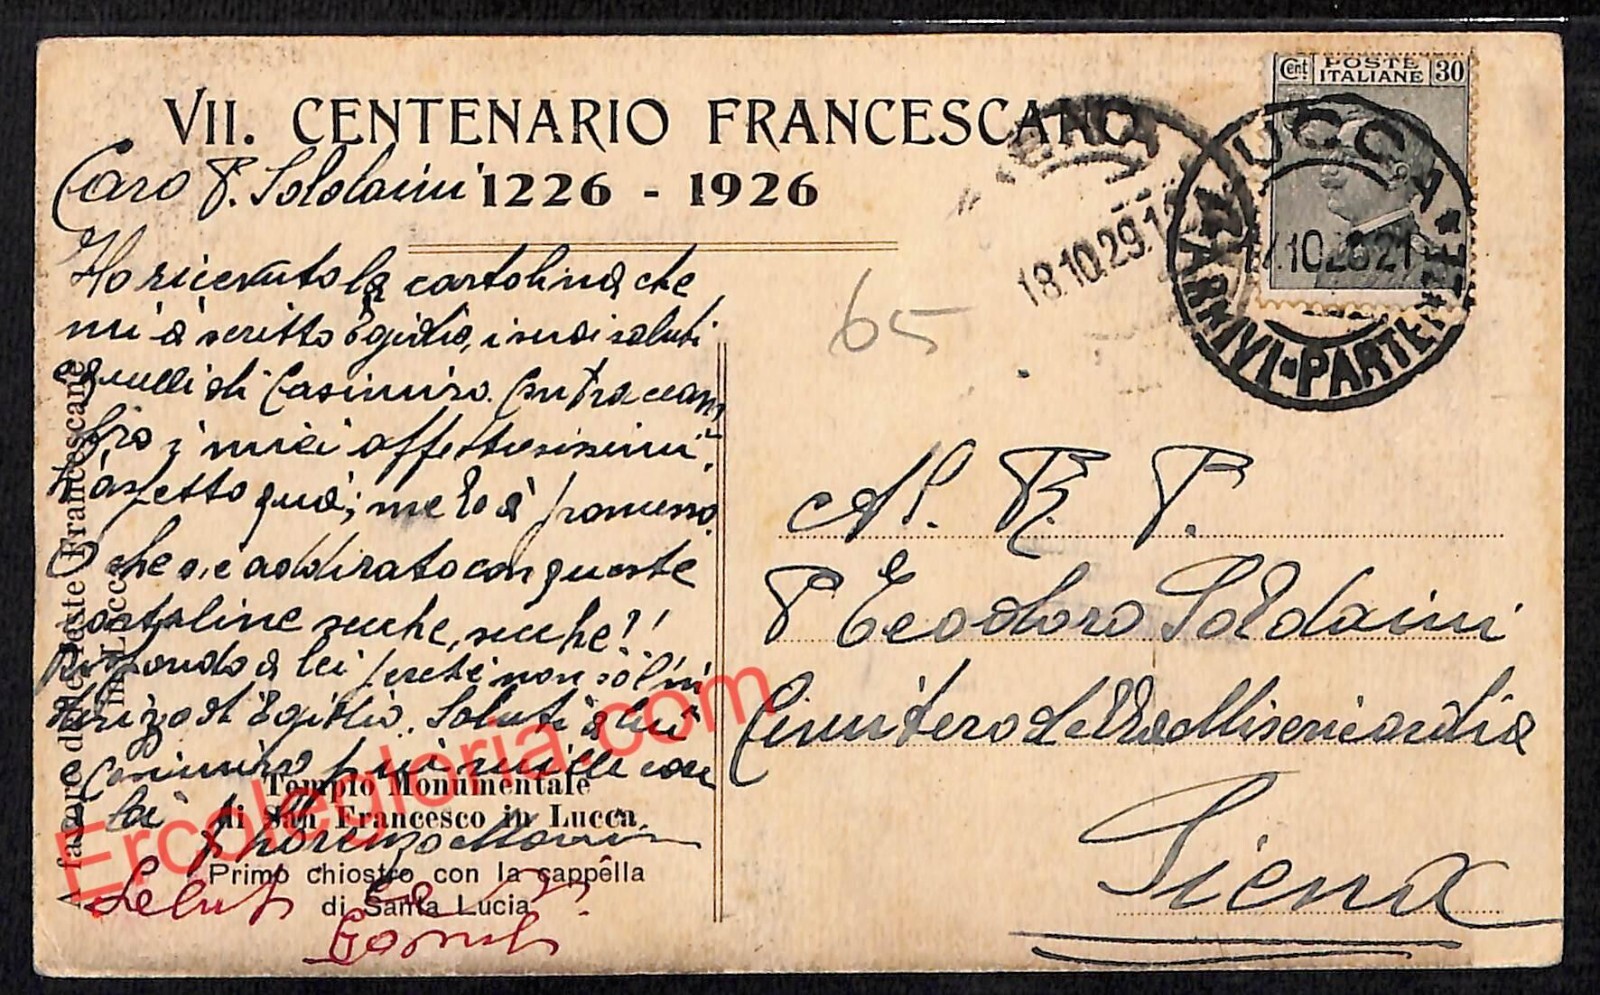 VII. CENTENARIO FRANCESCANO
1226 - 1926
Cent POSTE ITALIANE 30
LUCCA
ARRIVI-PARTENZE
18.10.29
Caro P. Soldaini
Ho ricevuto la cartolina che
mi à scritto Egidio, i suoi saluti
e quelli di Casimiro. Contraccam
bio i miei affettuosissimi.
aspetto qua; me lo à promesso.
O che si è addirato con queste
cartoline secche, secche?!
Rispondo a lei perché non so l'in
dirizzo di Egidio. Saluti a lui
Casimiro
lei
P. Lorenzo
Saluti
A favore delle Feste Francescane
in Lucca
Tempio Monumentale
di San Francesco in Lucca
Primo chiostro con la cappella
di Santa Lucia
65
Al R. P.
P Teodoro Soldaini
Cimitero della Misericordia
Siena
Ercolegloria.com